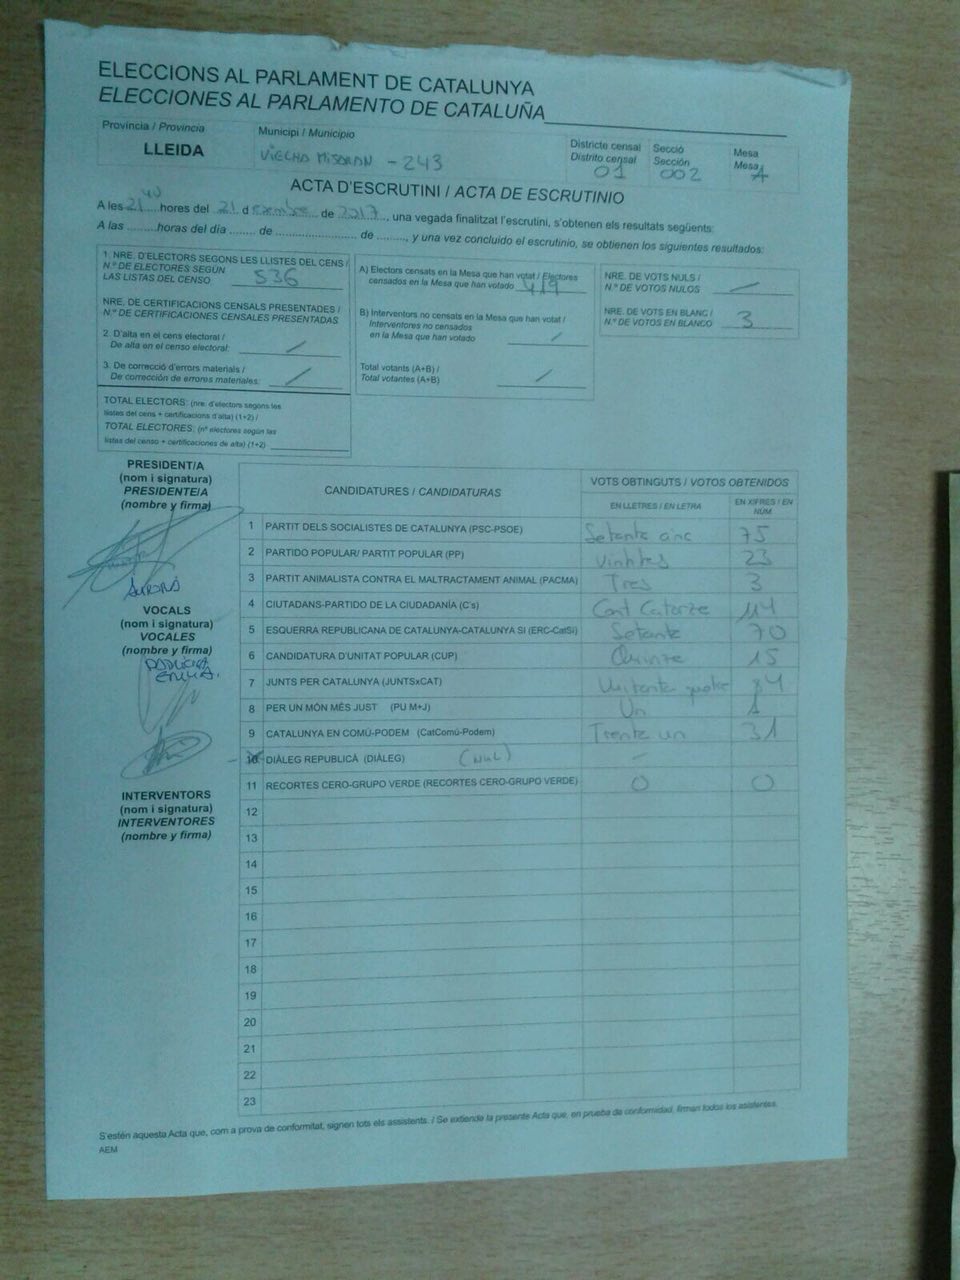 ELECCIONS AL PARLAMENT DE CATALUNYA
ELECCIONES AL PARLAMENTO DE CATALUÑA
Província / Provincia
LLEIDA
Municipi / Municipio
VIECHA MIJARAN - 243
Districte censal
Distrito censal
01
Secció
Sección
002
Mesa
Mesa
A
ACTA D'ESCRUTINI / ACTA DE ESCRUTINIO
A les 21 40 hores del 21 d esembre de 2017, una vegada finalitzat l'escrutini, s'obtenen els resultats següents:
A las ........horas del día ....... de ........................ de ........, y una vez concluido el escrutinio, se obtienen los siguientes resultados:
1. NRE. D'ELECTORS SEGONS LES LLISTES DEL CENS /
N.º DE ELECTORES SEGÚN
LAS LISTAS DEL CENSO 536
NRE. DE CERTIFICACIONS CENSALS PRESENTADES /
N.º DE CERTIFICACIONES CENSALES PRESENTADAS
2. D'alta en el cens electoral /
De alta en el censo electoral: /
3. De correcció d'errors materials /
De corrección de errores materiales: /
TOTAL ELECTORS: (nre. d'electors segons les
llistes del cens + certificacions d'alta) (1+2) /
TOTAL ELECTORES: (nº electores según las
listas del censo + certificaciones de alta) (1+2)
A) Electors censats en la Mesa que han votat / Electores
censados en la Mesa que han votado 419
B) Interventors no censats en la Mesa que han votat /
Interventores no censados
en la Mesa que han votado /
Total votants (A+B) /
Total votantes (A+B) /
NRE. DE VOTS NULS /
N.º DE VOTOS NULOS /
NRE. DE VOTS EN BLANC /
N.º DE VOTOS EN BLANCO 3
PRESIDENT/A
(nom i signatura)
PRESIDENTE/A
(nombre y firma)
VOCALS
(nom i signatura)
VOCALES
(nombre y firma)
INTERVENTORS
(nom i signatura)
INTERVENTORES
(nombre y firma)
CANDIDATURES / CANDIDATURAS
VOTS OBTINGUTS / VOTOS OBTENIDOS
EN LLETRES / EN LETRA
EN XIFRES / EN NÚM
1 PARTIT DELS SOCIALISTES DE CATALUNYA (PSC-PSOE) Setanta cinc 75
2 PARTIDO POPULAR/ PARTIT POPULAR (PP) Vintitres 23
3 PARTIT ANIMALISTA CONTRA EL MALTRACTAMENT ANIMAL (PACMA) Tres 3
4 CIUTADANS-PARTIDO DE LA CIUDADANÍA (C's) Cent Catorze 114
5 ESQUERRA REPUBLICANA DE CATALUNYA-CATALUNYA SI (ERC-CatSí) Setanta 70
6 CANDIDATURA D'UNITAT POPULAR (CUP) Quinze 15
7 JUNTS PER CATALUNYA (JUNTSxCAT) Vuitanta quatre 84
8 PER UN MÓN MÉS JUST (PU M+J) Un 1
9 CATALUNYA EN COMÚ-PODEM (CatComú-Podem) Trenta un 31
10 DIÀLEG REPUBLICÀ (DIÀLEG) (NUL) -
11 RECORTES CERO-GRUPO VERDE (RECORTES CERO-GRUPO VERDE) 0 0
12
13
14
15
16
17
18
19
20
21
22
23
S'estén aquesta Acta que, com a prova de conformitat, signen tots els assistents. / Se extiende la presente Acta que, en prueba de conformidad, firman todos los asistentes.
AEM